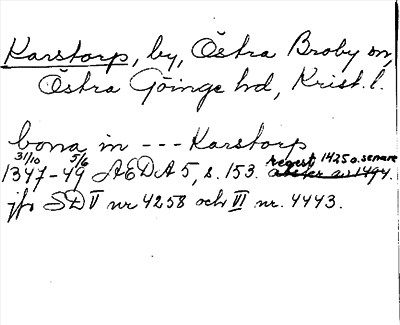 Karstorp, by, Östra Broby sn,
Östra Göinge hd, Krist. l.
bona in --- Karstorp
31/10 5/6 regest 1425 o. senare
1347-49 AEDA 5, s. 153. avskr. av 1494.
jfr SD V nr 4258 och VI nr. 4443.